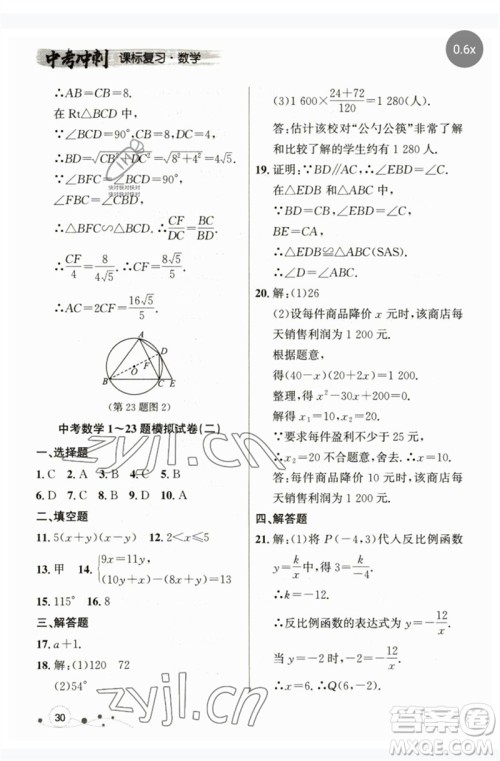 中考冲刺 课标复习·数学
0.6x
∴AB=CB=8.
在 Rt△BCD 中,
∵∠BCD=90°,CD=4,
∴BD=√(CB²+CD²)=√(8²+4²)=4√5.
∵∠BFC=∠BCD=90°,
∠FBC=∠CBD,
∴△CBF∽△DBC,∴CF/DC=BC/BD,
∴CF/4=8/(4√5),∴CF=8√5/5.
∴AC=2CF=16√5/5.
A
D
B
O
F
C
E
(第 23 题图 2)
中考数学 1~23 题模拟试卷(二)
一、选择题
1. C 2. A 3. B 4. C 5. C
6. D 7. D 8. A 9. D 10. B
二、填空题
11. 5(x+y)(x-y) 12. 0≤x<2
13. 甲 14. {9x=11y, (10y+x)-(8x+y)=13
15. 115° 16. 8
三、解答题
17. a+1.
18. 解:(1)120 72
(2)54°
30
(3)1 600×(24+72)/120=1 280(人).
答:估计该校对“公勺公筷”非常了
解和比较了解的学生约有 1 280 人.
19. 证明:∵BD∥AC,∴∠EBD=∠C.
∵BD=BC,∠EBD=∠C,
BE=CA,
∴△EDB≌△ABC(SAS).
∴∠D=∠ABC.
20. 解:(1)26
(2)设每件商品降价 x 元,该商店每
天销售利润为 1 200 元.
根据题意,
得(40-x)(20+2x)=1 200.
整理,得 x²-30x+200=0.
解得 x₁=10,x₂=20.
∵要求每件盈利不少于 25 元,
∴x₂=20 不合题意,舍去.
∴x=10.
答:每件商品降价 10 元时,该商店
每天销售利润为 1 200 元.
四、解答题
21. 解:(1)将 P(-4,3)代入反比例函数
y=k/x 中,得 3=k/-4.
∴k=-12.
∴反比例函数的表达式为 y=-12/x.
当 y=1 时,1=-12/x.
∴x=-12.
zyjl.cn
zyjl.cn